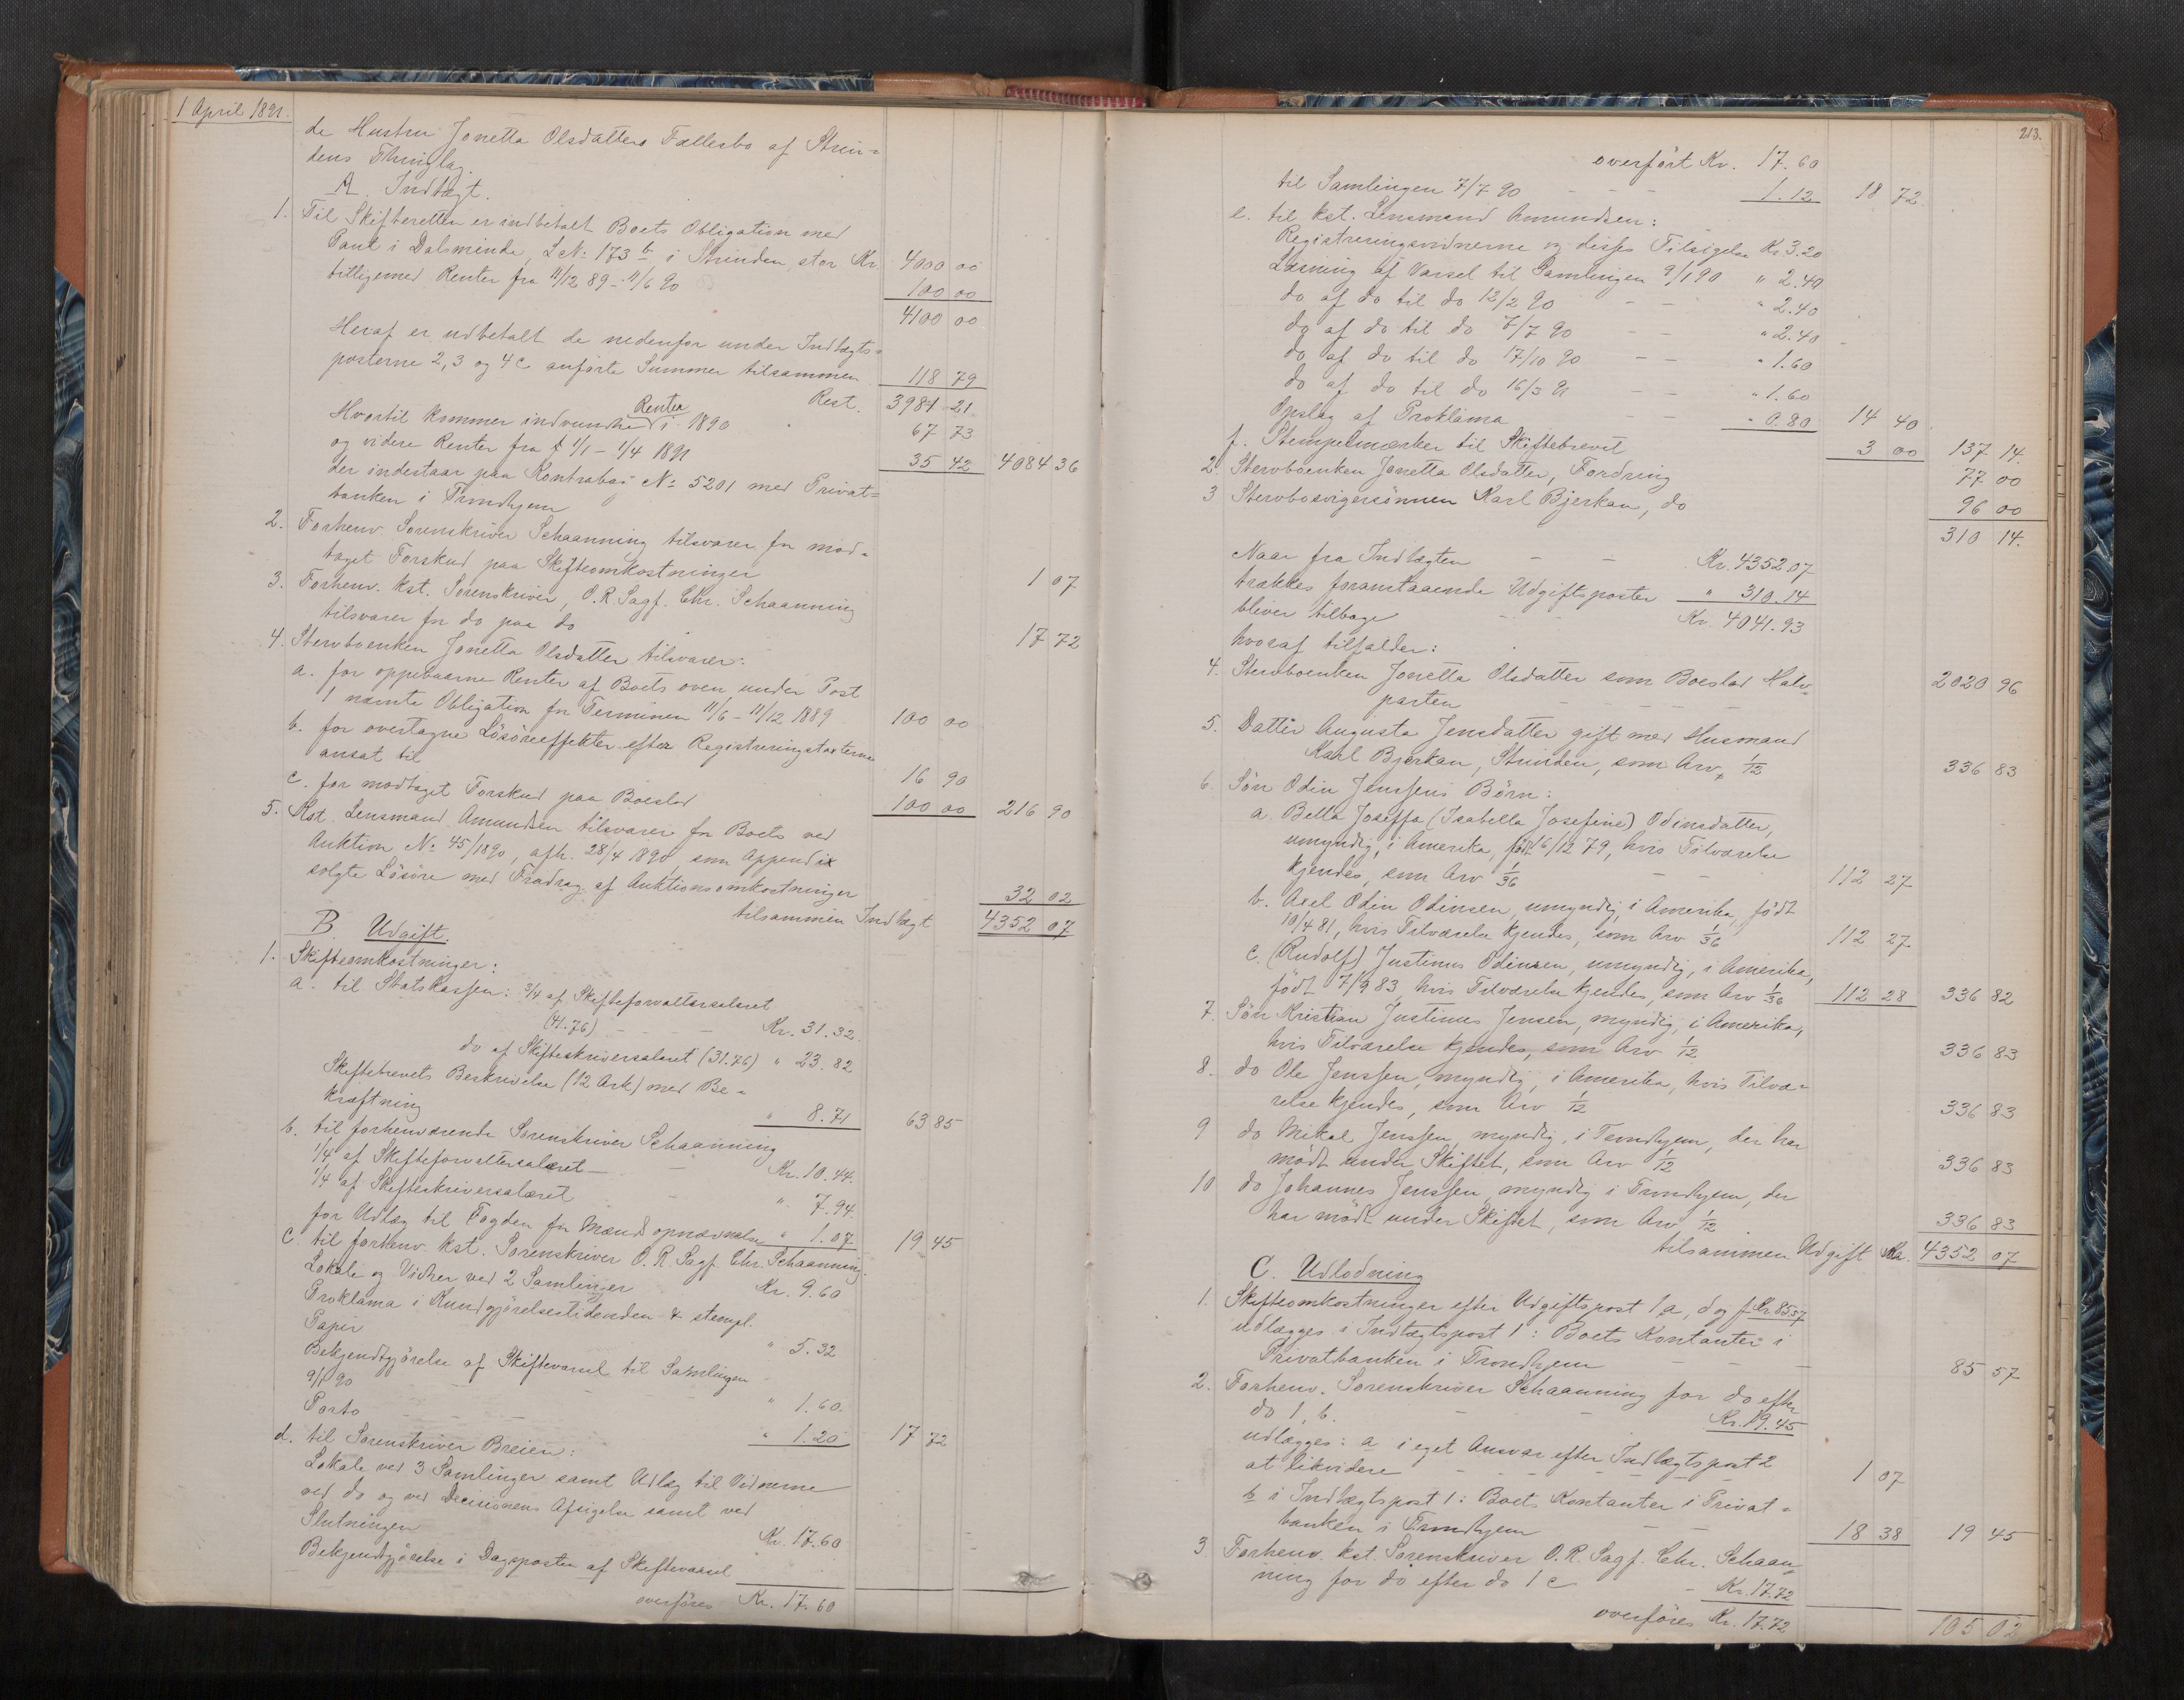 1 April 1891.
de Hustru Jonetta Olsdatters Fællesbo af Strin=
dens Thinglag.
A. Indtægt.
1. Til Skifteretten er indbetalt Boets Obligation med
Pant i Dalsminde, L.No. 173 b i Strinden, stor Kr. 4000 00
tilligemed Renter fra 11/12 89 - 11/6 90 100 00
4100 00
Heraf er udbetalt de nedenfor under Indtægts=
posterne 2, 3 og 4 c anførte Summer tilsammen 118 79
Rest. 3981 21
Hvortil kommer indvundne Renter i 1890 67 73
og videre Renter fra 1/1 - 1/4 1891 35 42 4084 36
der indestaar paa Kontrabog No. 5201 med Privat=
banken i Trondhjem
2. Forhenv. Sorenskriver Schaanning tilsvarer for mod=
taget Forskud paa Skifteomkostninger 1 07
3. Forhenv. kst. Sorenskriver, O.R.Sagf. Chr. Schaanning
tilsvarer for do paa do 17 72
4. Stervboenken Jonetta Olsdatter tilsvarer:
a. for oppebaarne Renter af Boets oven under Post
1 nævnte Obligation for Terminen 11/6 - 11/12 1889 100 00
b. for overtagne Løsøreeffekter efter Registreringstaxterne
ansat til 16 90
c. for modtaget Forskud paa Boeslod 100 00 216 90
5. Kst. Lensmand Amundsen tilsvarer for Boets ved
Auktion No. 45/1890, afh. 28/4 1890, som Appendix
solgte Løsøre med Fradrag af Auktionsomkostninger 32 02
tilsammen Indtægt 4352 07
B. Udgift.
1. Skifteomkostninger:
a. til Statskassen: 3/4 af Skifteforvaltersalæret
(41.76) - - Kr. 31.32
do af Skifteskriversalæret (31.76) " 23.82
Skiftebrevets Beskrivelse (12 Ark) med Be=
kræftning " 8.71 63 85
b. til forhenværende Sorenskriver Schaanning
1/4 af Skifteforvaltersalæret - - Kr. 10.44
1/4 af Skifteskriversalæret - " 7.94
for Udlæg til Fogden for Mænds opnævnelse " 1.07 19 45
c. til forhenv. kst. Sorenskriver O.R Sagf. Chr. Schaanning:
Lokale og Vidner ved 2 Samlinger Kr. 9.60
Proklama i Kundgjørelsestidenden & stempl.
Papir " 5.32
Bekjendtgjørelse af Skiftevarsel til Samlingen
9/1 90 - - - - " 1.60
Porto - - - " 1.20 17 72
d. til Sorenskriver Breien:
Lokale ved 3 Samlinger samt Udlæg til Vidnerne
ved do og ved Decisionens Afsigelse samt ved
Slutningen Kr. 17.60
Bekjendtgjørelse i Dagsposten af Skiftevarsel
overføres Kr. 17.60
213.
overført Kr. 17.60
til Samlingen 7/7 90 - - - 1.12 18 72
e. til kst. Lensmand Amundsen:
Registreringsvidnerne og disses Tilsigelse Kr. 3.20
Læsning af Varsel til Samlingen 9/1 90 " 2.40
do af do til do 12/2 90 - - " 2.40
do af do til do 7/7 90 - - " 2.40
do af do til do 17/10 90 - - " 1.60
do af do til do 16/3 91 - " 1.60
Opslag af Proklama - - " 0.80 14 40
f. Stempelmærker til Skiftebrevet 3 00 137 14
2. Stervboenken Jonetta Olsdatter, Fordring 77 00
3 Stervbosvigersønnen Karl Bjerkan, do 96 00
310 14
Naar fra Indtægten - - Kr. 4352.07
trækkes foranstaaende Udgiftsposter " 310.14
bliver tilbage - - Kr. 4041.93
hvoraf tilfalder:
4. Stervboenken Jonetta Olsdatter som Boeslod Halv=
parten - - - - 2020 96
5. Datter Augusta Jensdatter gift med Husmand
Karl Bjerkan, Strinden, som Arv 1/12 336 83
6. Søn Odin Jenssens Børn:
a. Bella Joseffa (Isabella Josefine) Odinsdatter,
umyndig, i Amerika, født 16/12 79, hvis Tilværelse
kjendes, som Arv 1/36 - - 112 27
b. Axel Odin Odinsen, umyndig, i Amerika, født
10/4 81, hvis Tilværelse kjendes, som Arv 1/36 112 27
c. (Rudolf) Justinus Odinsen, umyndig, i Amerika,
født 7/9 83 hvis Tilværelse kjendes, som Arv 1/36 112 28 336 82
7. Søn Kristian Justinus Jensen, myndig, i Amerika,
hvis Tilværelse kjendes, som Arv 1/12 336 83
8. do Ole Jenssen, myndig, i Amerika, hvis Tilvæ=
relse kjendes, som Arv 1/12 336 83
9 do Mikal Jenssen, myndig, i Trondhjem, der har
mødt under Skiftet, som Arv 1/12 336 83
10 do Johannes Jenssen, myndig i Trondhjem, der
har mødt under Skiftet, som Arv 1/12 336 83
tilsammen Udgift Kr. 4352 07
C. Udlodning
1. Skifteomkostninger efter Udgiftspost 1 a, d og f Kr 85.57
udlægges i Indtægtspost 1: Boets Kontanter i
Privatbanken i Trondhjem - - - 85 57
2. Forhenv. Sorenskriver Schaanning for do efter
do 1, b. - - Kr. 19.45
udlægges: a i eget Ansvar efter Indtægtspost 2
at likvidere - - - - 1 07
b i Indtægtspost 1: Boets Kontanter i Privat=
banken i Trondhjem - - 18 38 19 45
3. Forhenv. kst. Sorenskriver O.R. Sagf. Chr. Schaan=
ning for do efter do 1 c - Kr. 17.72
overføres Kr. 17.72 105 02